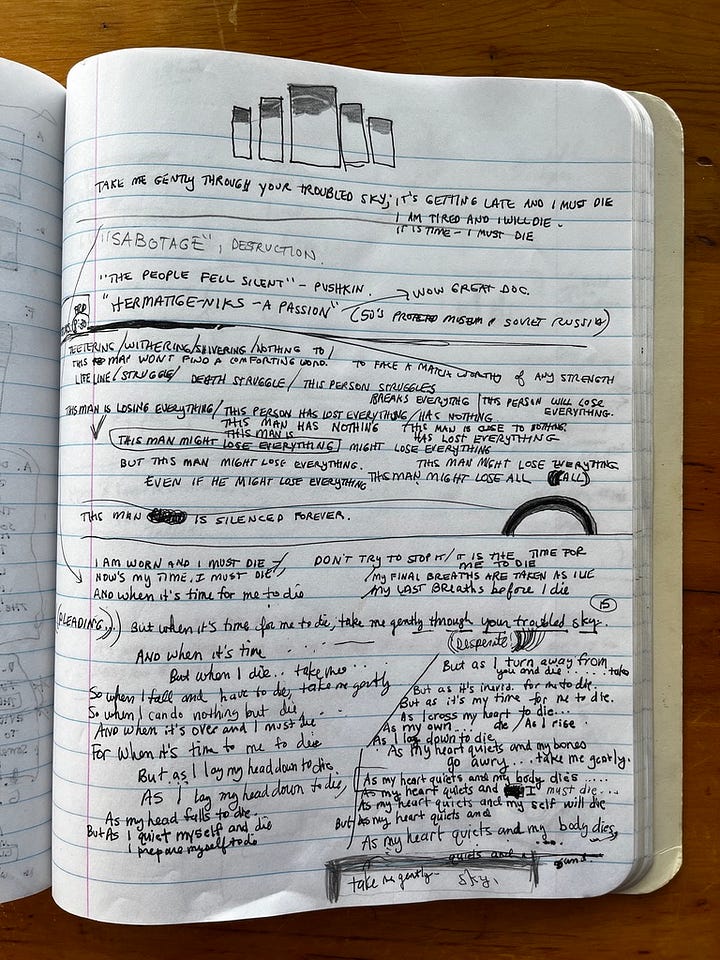 TAKE ME GENTLY THROUGH YOUR TROUBLED SKY; IT'S GETTING LATE AND I MUST DIE
I AM TIRED AND I WILL DIE -
IT IS TIME - I MUST DIE
"SABOTAGE", DESTRUCTION.
"THE PEOPLE FELL SILENT" - PUSHKIN.
"HERMATIGE-NIKS - A PASSION" → WOW GREAT DOC.
(50'S MUSEUM SOVIET RUSSIA)
TEETERING / WITHERING / SHIVERING / NOTHING TO /
THIS MAN WON'T FIND A COMFORTING WORD. TO FACE A MATCH WORTHY OF ANY STRENGTH
LIFE LINE / STRUGGLE / DEATH STRUGGLE / THIS PERSON STRUGGLES
BREAKS EVERYTHING THIS PERSON WILL LOSE EVERYTHING.
THIS MAN IS LOSING EVERYTHING / THIS PERSON HAS LOST EVERYTHING / HAS NOTHING
THIS MAN HAS NOTHING THIS MAN IS CLOSE TO NOTHING.
THIS MAN IS HAS LOST EVERYTHING
THIS MAN MIGHT LOSE EVERYTHING MIGHT LOSE EVERYTHING
BUT THIS MAN MIGHT LOSE EVERYTHING. THIS MAN MIGHT LOSE EVERYTHING
EVEN IF HE MIGHT LOSE EVERYTHING THIS MAN MIGHT LOSE ALL (ALL)
THIS MAN IS SILENCED FOREVER.
I AM WORN AND I MUST DIE /
NOW'S MY TIME, I MUST DIE /
AND when it's time for me to die
DON'T TRY TO STOP IT / IT IS THE TIME FOR
ME TO DIE
MY FINAL BREATHS ARE TAKEN AS I LIE
MY LAST BREATHS before I die
15
(PLEADING...) But when it's time for me to die, take me gently through your troubled sky.
AND when it's time
But when I die.. take me...
So when I fall and have to die, take me gently
So when I can do nothing but die
AND when it's over and I must die
For when it's time to me to die
But as I lay my head down to die
AS I lay my head down to die,
As my head falls to die
But As I quiet myself and die
I prepare myself to do
(Desperate)
But as I turn away from
you and die ...... take
But as it's for me to die.
But as it's my time for me to die.
As I cross my heart to die...
As my own... die / As I rise.
As I lay down to die
As my heart quiets and my bones
go awry.... take me gently.
As my heart quiets and my body dies ....
As my heart quiets and I must die...
As my heart quiets and my self will die
But As my heart quiets and
As my heart quiets and my body dies,
quiets and
take me gently - sky.